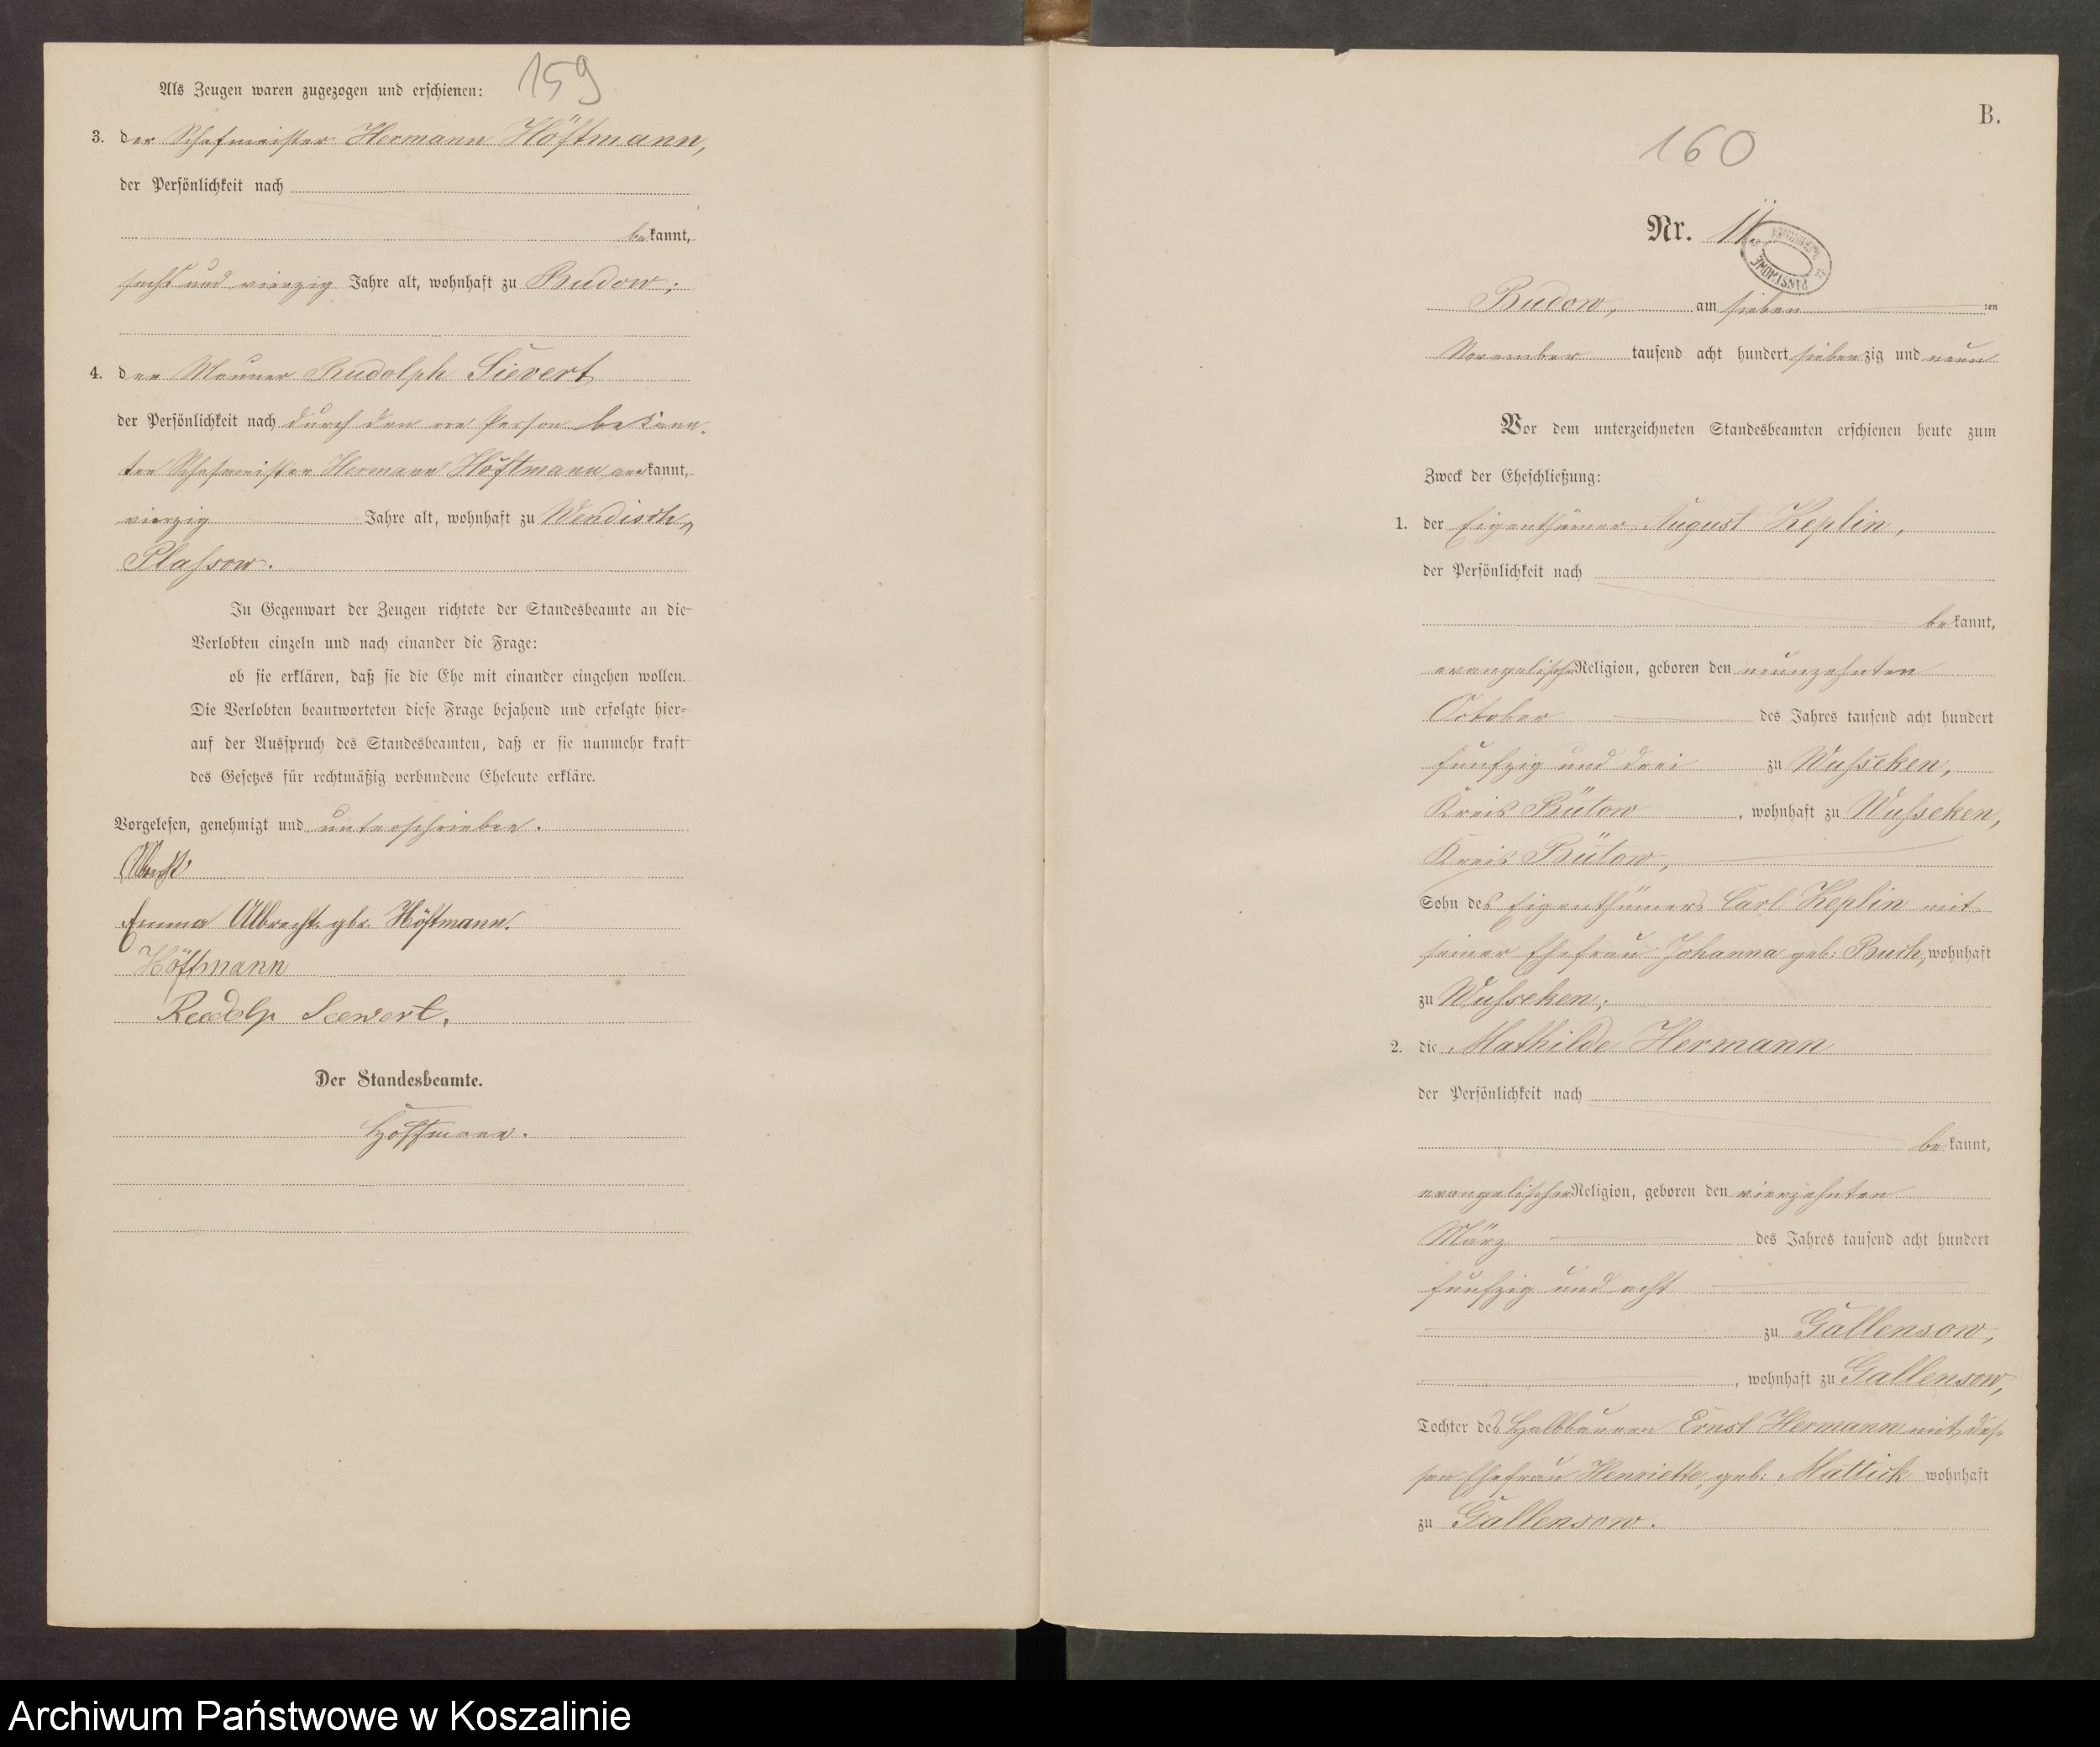 159
Als Zeugen waren zugezogen und erschienen:
3. der Schafmeister Hermann Höftmann,
der Persönlichkeit nach
bekannt,
sechs und vierzig Jahre alt, wohnhaft zu Budow;
4. der Maurer Rudolph Sievert
der Persönlichkeit nach durch den von Person bekann-
ten Schafmeister Hermann Höftmann anerkannt,
vierzig Jahre alt, wohnhaft zu Wendisch-
Plassow.
In Gegenwart der Zeugen richtete der Standesbeamte an die
Verlobten einzeln und nach einander die Frage:
ob sie erklären, daß sie die Ehe mit einander eingehen wollen.
Die Verlobten beantworteten diese Frage bejahend und erfolgte hier-
auf der Ausspruch des Standesbeamten, daß er sie nunmehr kraft
des Gesetzes für rechtmäßig verbundene Eheleute erkläre.
Vorgelesen, genehmigt und unterschrieben.
Emma Albrecht gbr. Höftmann.
Höftmann
Der Standesbeamte.
B.
160
Nr. 11
Budow, am sieben ten
November tausend acht hundert siebenzig und neun
Vor dem unterzeichneten Standesbeamten erschienen heute zum
Zweck der Eheschließung:
1. der Eigenthümer August Keplin,
der Persönlichkeit nach
bekannt,
evangelischer Religion, geboren den neunzehnten
October des Jahres tausend acht hundert
funfzig und drei zu Wusseken,
Kreis Bütow, wohnhaft zu Wusseken,
Kreis Bütow,
Sohn des Eigenthümers Carl Keplin mit
seiner Ehefrau Johanna geb: Buch, wohnhaft
zu Wusseken;
2. die Mathilde Hermann
der Persönlichkeit nach
bekannt,
evangelischer Religion, geboren den vierzehnten
März des Jahres tausend acht hundert
funfzig und acht
zu Gallensow,
, wohnhaft zu Gallensow,
Tochter des Halbbauern Ernst Hermann mit des-
sen Ehefrau Henriette, geb: Mattick wohnhaft
zu Gallensow.
Archiwum Państwowe w Koszalinie